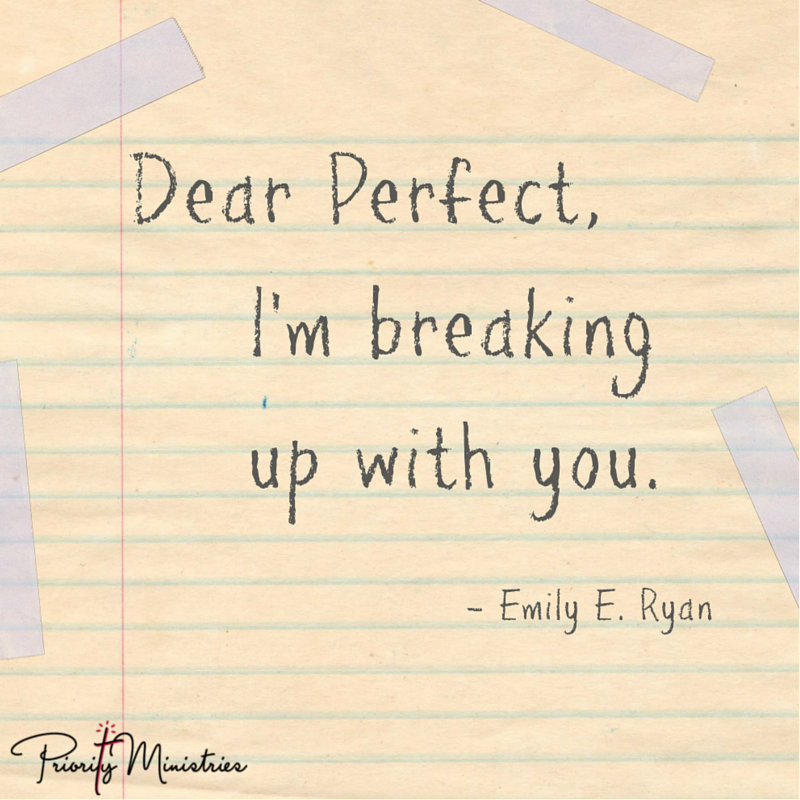 Dear Perfect,
I'm breaking
up with you.
- Emily E. Ryan
Priority Ministries